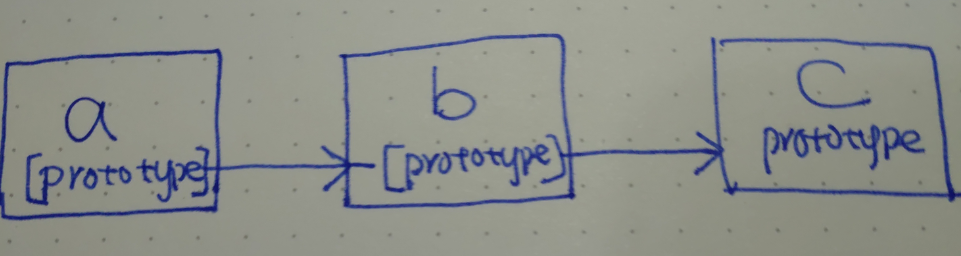 a
[prototype]
b
[prototype]
C
prototype